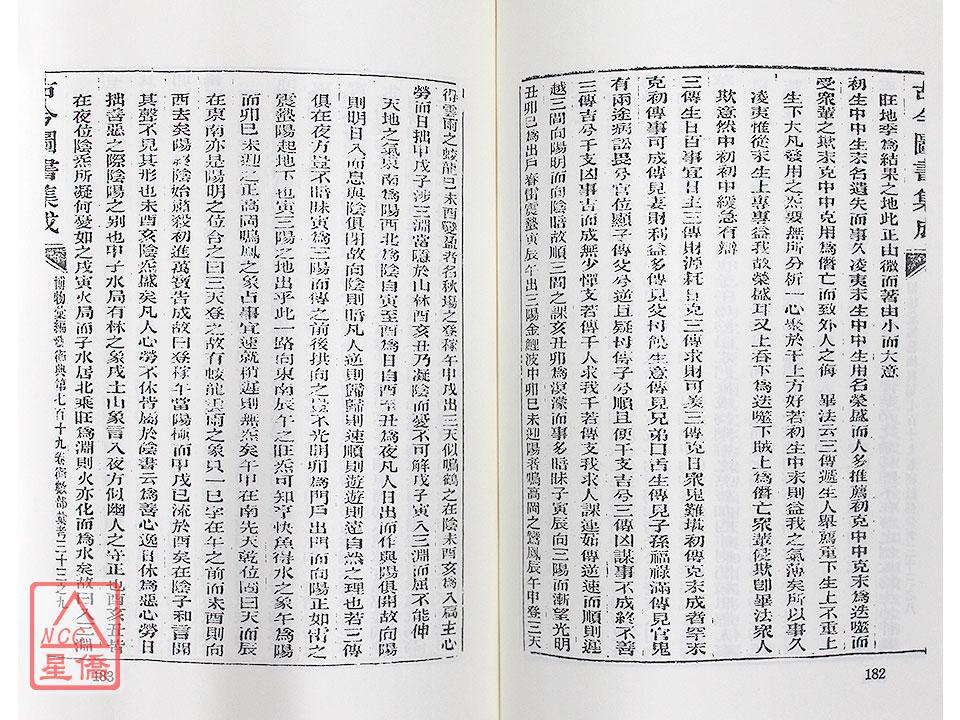 古今圖書集成
旺地季為結果之地此正由微而著由小而大意
初生中中生末名遺失而事久凌夷末生中中生用名榮盛而人多推薦初克中中克末為迭噬而
受眾輩之欺末克中中克用為僭亡而致外人之侮 畢法云三傳遞生人舉薦重下生上不重上
生下大凡發用之炁要無所分析一心聚於干上方好若初生中末則益我之氣薄矣所以事久
凌夷惟從末生上專專益我故榮盛耳又上吞下為迭噬下賊上為僭亡眾輩侵欺卽畢法眾人
欺意然中初初中緩急有辯
三傳生日百事宜日生三傳財源耗日克三傳求財可美三傳克日眾鬼難堪初傳克末成者罕末
克初傳事可成傳見妻財利益多傳見父母饒生意傳見兄弟口舌生傳見子孫福祿滿傳見官鬼
有兩途病訟畏兮官位顯子傳父兮逆且疑母傳子兮順且便干支吉兮三傳凶謀事不成終不善
三傳吉兮干支凶事吉而成無少憚支若傳干人求我干若傳支我求人課進茹傳逆速而順則遲
越三間向陽明而向陰暗故順三間之課亥丑卯為溟濛而事多暗昧子寅辰向三陽而漸望光明
丑卯巳為出戶春雷震蟄寅辰午出三陽金鯉波中卯巳未迎陽者鳴高岡之鸞鳳辰午申登三天
182
得雲雨之蛟龍巳未酉變盈者名秋塲之登稼午申戌出三天似鳴鶴之在陰未酉亥為入冥主心
勞而日拙申戌子涉三淵當隱於山林酉亥丑乃凝陰而憂不可解戌子寅入三淵而屈不能伸
天地之氣東南為陽西北為陰自寅至酉為日自酉至丑為夜凡人日出而作與陽俱開故向陽
則明日入而息與陰俱閉故向陰則暗凡人歸則歸則速順則遊遊則遲自然之理也若三傳
俱在夜方豈不暗昧寅為三陽而傳之前後拱向之豈不光明卯為門戶出門而向陽正如雷之
震蟄陽起地下也寅三陽之地出乎此一路向東南辰午之旺炁可知亨快魚得水之象午為陽
而卯巳未迎之正高岡鳴鳳之象占事宜速就稍遲則無炁矣午中在南先天乾位故曰天而辰
在東南亦是陽明之位合之曰三天登之故有蛟龍雲雨之象員一巳字在午之前而未酉則向
西去矣陽終陰始肅殺初進萬寶告成故曰登稼午當陽極而申戌已流於酉矣在陰子和言聞
其聲不見其形也未酉亥陰炁盛矣凡人心勞不休皆屬於陰書云為善心逸日休為惡心勞日
拙善惡之際陰陽之別也申子水局有林之象戌土山象言入夜方似幽人之守正也酉亥丑皆
在夜位陰炁所凝何憂如之戌寅火局而子水居北乘旺為淵則火亦化而為水矣故曰入三淵
古今圖書集成
博物彙編藝術典第七百十九卷術數部彙考二十三之九
183
NCC
星僑